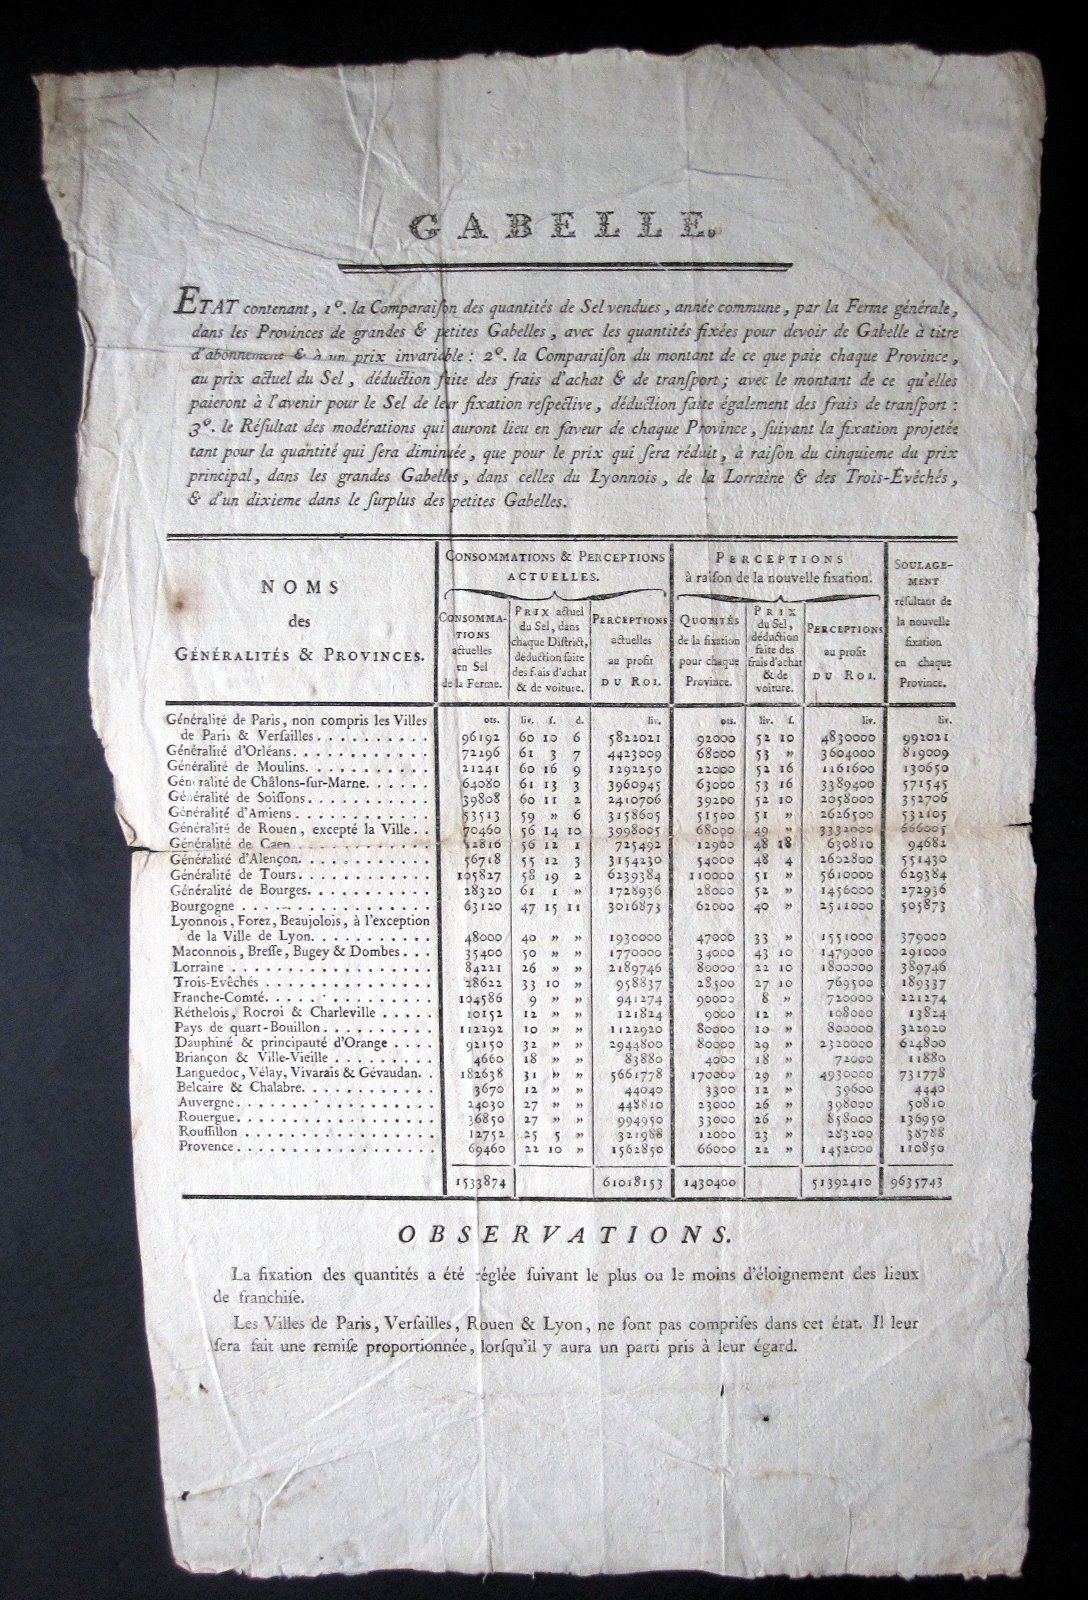 GABELLE.
ETAT contenant, 1º. la Comparaiſon des quantités de Sel vendues, année commune, par la Ferme générale,
dans les Provinces de grandes & petites Gabelles, avec les quantités fixées pour devoir de Gabelle à titre
d'abonnement & à un prix invariable : 2º. la Comparaiſon du montant de ce que paie chaque Province,
au prix actuel du Sel, déduction faite des frais d'achat & de tranſport; avec le montant de ce qu'elles
paieront à l'avenir pour le Sel de leur fixation reſpective, déduction faite également des frais de tranſport :
3º. le Réſultat des modérations qui auront lieu en faveur de chaque Province, ſuivant la fixation projetée
tant pour la quantité qui ſera diminuée, que pour le prix qui ſera réduit, à raiſon du cinquieme du prix
principal, dans les grandes Gabelles, dans celles du Lyonnois, de la Lorraine & des Trois-Evêchés,
& d'un dixieme dans le ſurplus des petites Gabelles.
NOMS
des
GÉNÉRALITÉS & PROVINCES.
CONSOMMATIONS & PERCEPTIONS
ACTUELLES.
PERCEPTIONS
à raiſon de la nouvelle fixation.
SOULAGE-
MENT
réſultant de
la nouvelle
fixation
en chaque
Province.
CONSOMMA-
TIONS
actuelles
en Sel
de la Ferme.
PRIX actuel
du Sel, dans
chaque Diſtrict,
déduction faite
des frais d'achat
& de voiture.
PERCEPTIONS
actuelles
au profit
DU ROI.
QUOTITÉS
de la fixation
pour chaque
Province.
PRIX
du Sel,
déduction
faite des
frais d'achat
& de
voiture.
PERCEPTIONS
au profit
DU ROI.
Généralité de Paris, non compris les Villes qts. liv. ſ. d. liv. qts. liv. ſ. liv. liv.
de Paris & Verſailles . . . 96192 60 10 6 5822021 92000 52 10 4830000 992021
Généralité d'Orléans . . . 72296 61 3 7 4423009 68000 53 » 3604000 819009
Généralité de Moulins . . . 21241 60 16 9 1292250 22000 52 16 1161600 130650
Généralité de Châlons-ſur-Marne . . . 64080 61 13 3 3960945 63000 53 16 3389400 571545
Généralité de Soiſſons . . . 39808 60 11 2 2410706 39200 52 10 2058000 352706
Généralité d'Amiens . . . 53513 59 » 6 3158605 51500 51 » 2626500 532105
Généralité de Rouen, excepté la Ville . . 70460 56 14 10 3998005 68000 49 » 3332000 666005
Généralité de Caen . . . 12816 56 12 1 725492 12900 48 18 630810 94682
Généralité d'Alençon . . . 56718 55 12 3 3154230 54000 48 4 2602800 551430
Généralité de Tours . . . 105827 58 19 2 6239384 110000 51 » 5610000 629384
Généralité de Bourges . . . 28320 61 1 » 1728936 28000 52 » 1456000 272936
Bourgogne . . . 63120 47 15 11 3016873 62000 40 » 2511000 505873
Lyonnois, Forez, Beaujolois, à l'exception
de la Ville de Lyon . . . 48000 40 » » 1930000 47000 33 » 1551000 379000
Maconnois, Breſſe, Bugey & Dombes . . . 35400 50 » » 1770000 34000 43 10 1479000 291000
Lorraine . . . 84221 26 » » 2189746 80000 22 10 1800000 389746
Trois-Evêchés . . . 28622 33 10 » 958837 28500 27 10 769500 189337
Franche-Comté . . . 104586 9 » » 941274 90000 8 » 720000 221274
Réthelois, Rocroi & Charleville . . . 10152 12 » » 121824 9000 12 » 108000 13824
Pays de quart-Bouillon . . . 112292 10 » » 1122920 80000 10 » 800000 322920
Dauphiné & principauté d'Orange . . . 92150 32 » » 2944800 80000 29 » 2320000 624800
Briançon & Ville-Vieille . . . 4660 18 » » 83880 4000 18 » 72000 11880
Languedoc, Vélay, Vivarais & Gévaudan . . 182638 31 » » 5661778 170000 29 » 4930000 731778
Belcaire & Chalabre . . . 3670 12 » » 44040 3300 12 » 39600 4440
Auvergne . . . 24030 27 » » 448810 23000 26 » 398000 50810
Rouergue . . . 36850 27 » » 994950 33000 26 » 858000 136950
Rouſſillon . . . 12752 25 5 » 321988 12000 23 » 283200 38788
Provence . . . 69460 22 10 » 1562850 66000 22 » 1452000 110850
1533874 61018153 1430400 51392410 9635743
OBSERVATIONS.
La fixation des quantités a été réglée ſuivant le plus ou le moins d'éloignement des lieux
de franchiſe.
Les Villes de Paris, Verſailles, Rouen & Lyon, ne ſont pas compriſes dans cet état. Il leur
ſera fait une remiſe proportionnée, lorſqu'il y aura un parti pris à leur égard.